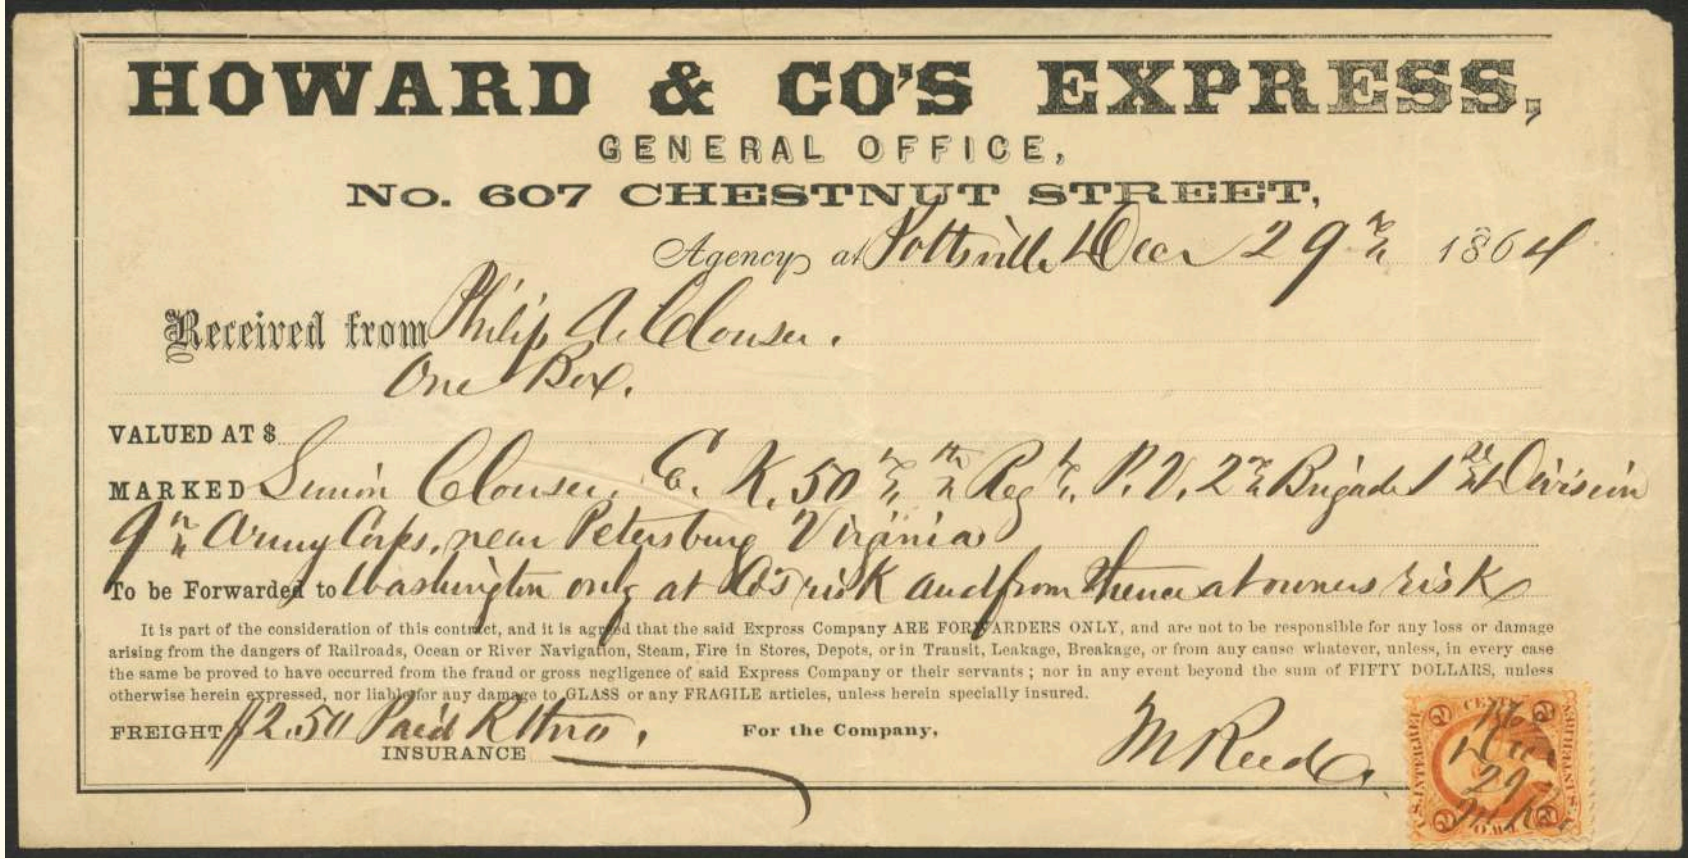 HOWARD & CO'S EXPRESS,
GENERAL OFFICE,
No. 607 CHESTNUT STREET,
Agency at Pottsville Decr 29th 1864
Received from Philip A. Clouser.
One Box.
VALUED AT $
MARKED Simon Clouser, Co. K. 50th Regt. P. V. 2nd Brigade 1st Division
9th Army Corps, near Petersburg Virginia
To be Forwarded to Washington only at Co's risk and from thence at owners risk
It is part of the consideration of this contract, and it is agreed that the said Express Company ARE FORWARDERS ONLY, and are not to be responsible for any loss or damage
arising from the dangers of Railroads, Ocean or River Navigation, Steam, Fire in Stores, Depots, or in Transit, Leakage, Breakage, or from any cause whatever, unless, in every case
the same be proved to have occurred from the fraud or gross negligence of said Express Company or their servants; nor in any event beyond the sum of FIFTY DOLLARS, unless
otherwise herein expressed, nor liable for any damage to GLASS or any FRAGILE articles, unless herein specially insured.
FREIGHT $2.50 Paid
INSURANCE
For the Company,
M Reed
2 CENTS 2
U.S. INTER. REV.
Dec
29
2 2